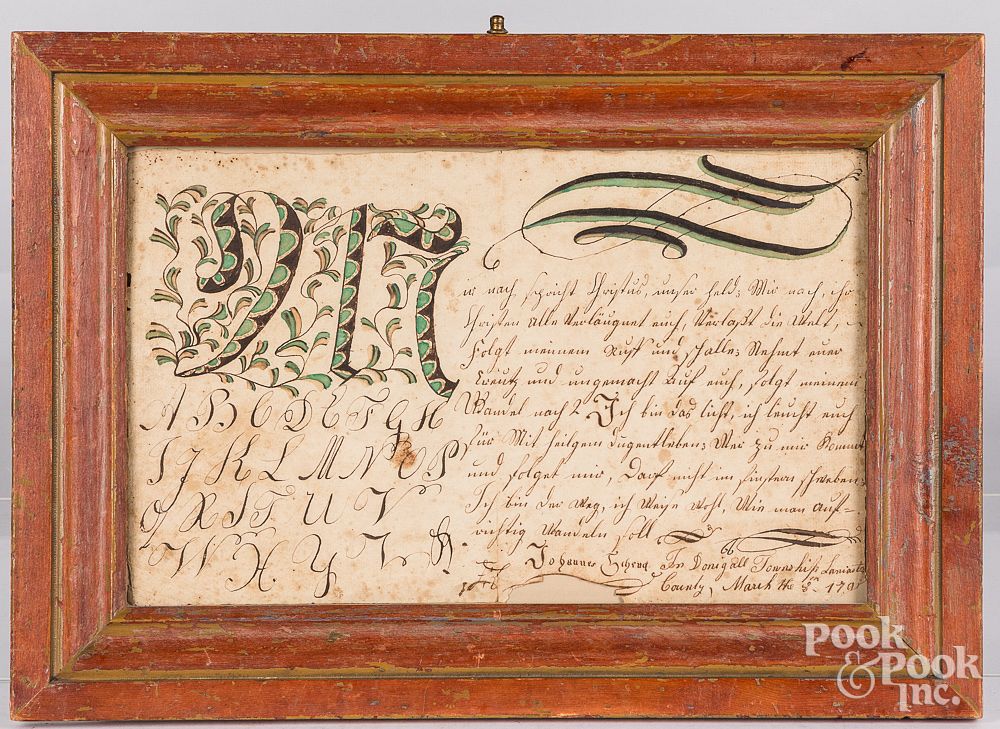 M
ir nach, spricht Christus, unser held: Mir nach, ihr
Christen alle Verläugnet euch, Verlaßt die Welt,
Folgt meinem Ruff und schalle; Nehmt euer
Creutz und ungemacht auf euch, folgt meinem
Wandel nach 2 Ich bin das licht, ich leucht euch
für Mit heilgem tugentleben; Wer zu mir kommet
und folget mir, Darf nicht im finstern schweben:
Ich bin der weg, ich Weise wohl, Wie man auf-
richtig Wandeln soll
A B C D E F G H
I J K L M N O P
Q R S T U V
W X Y Z
Johannes In Donigall Township Lancaster
County, March the
Pook
& Pook
Inc.